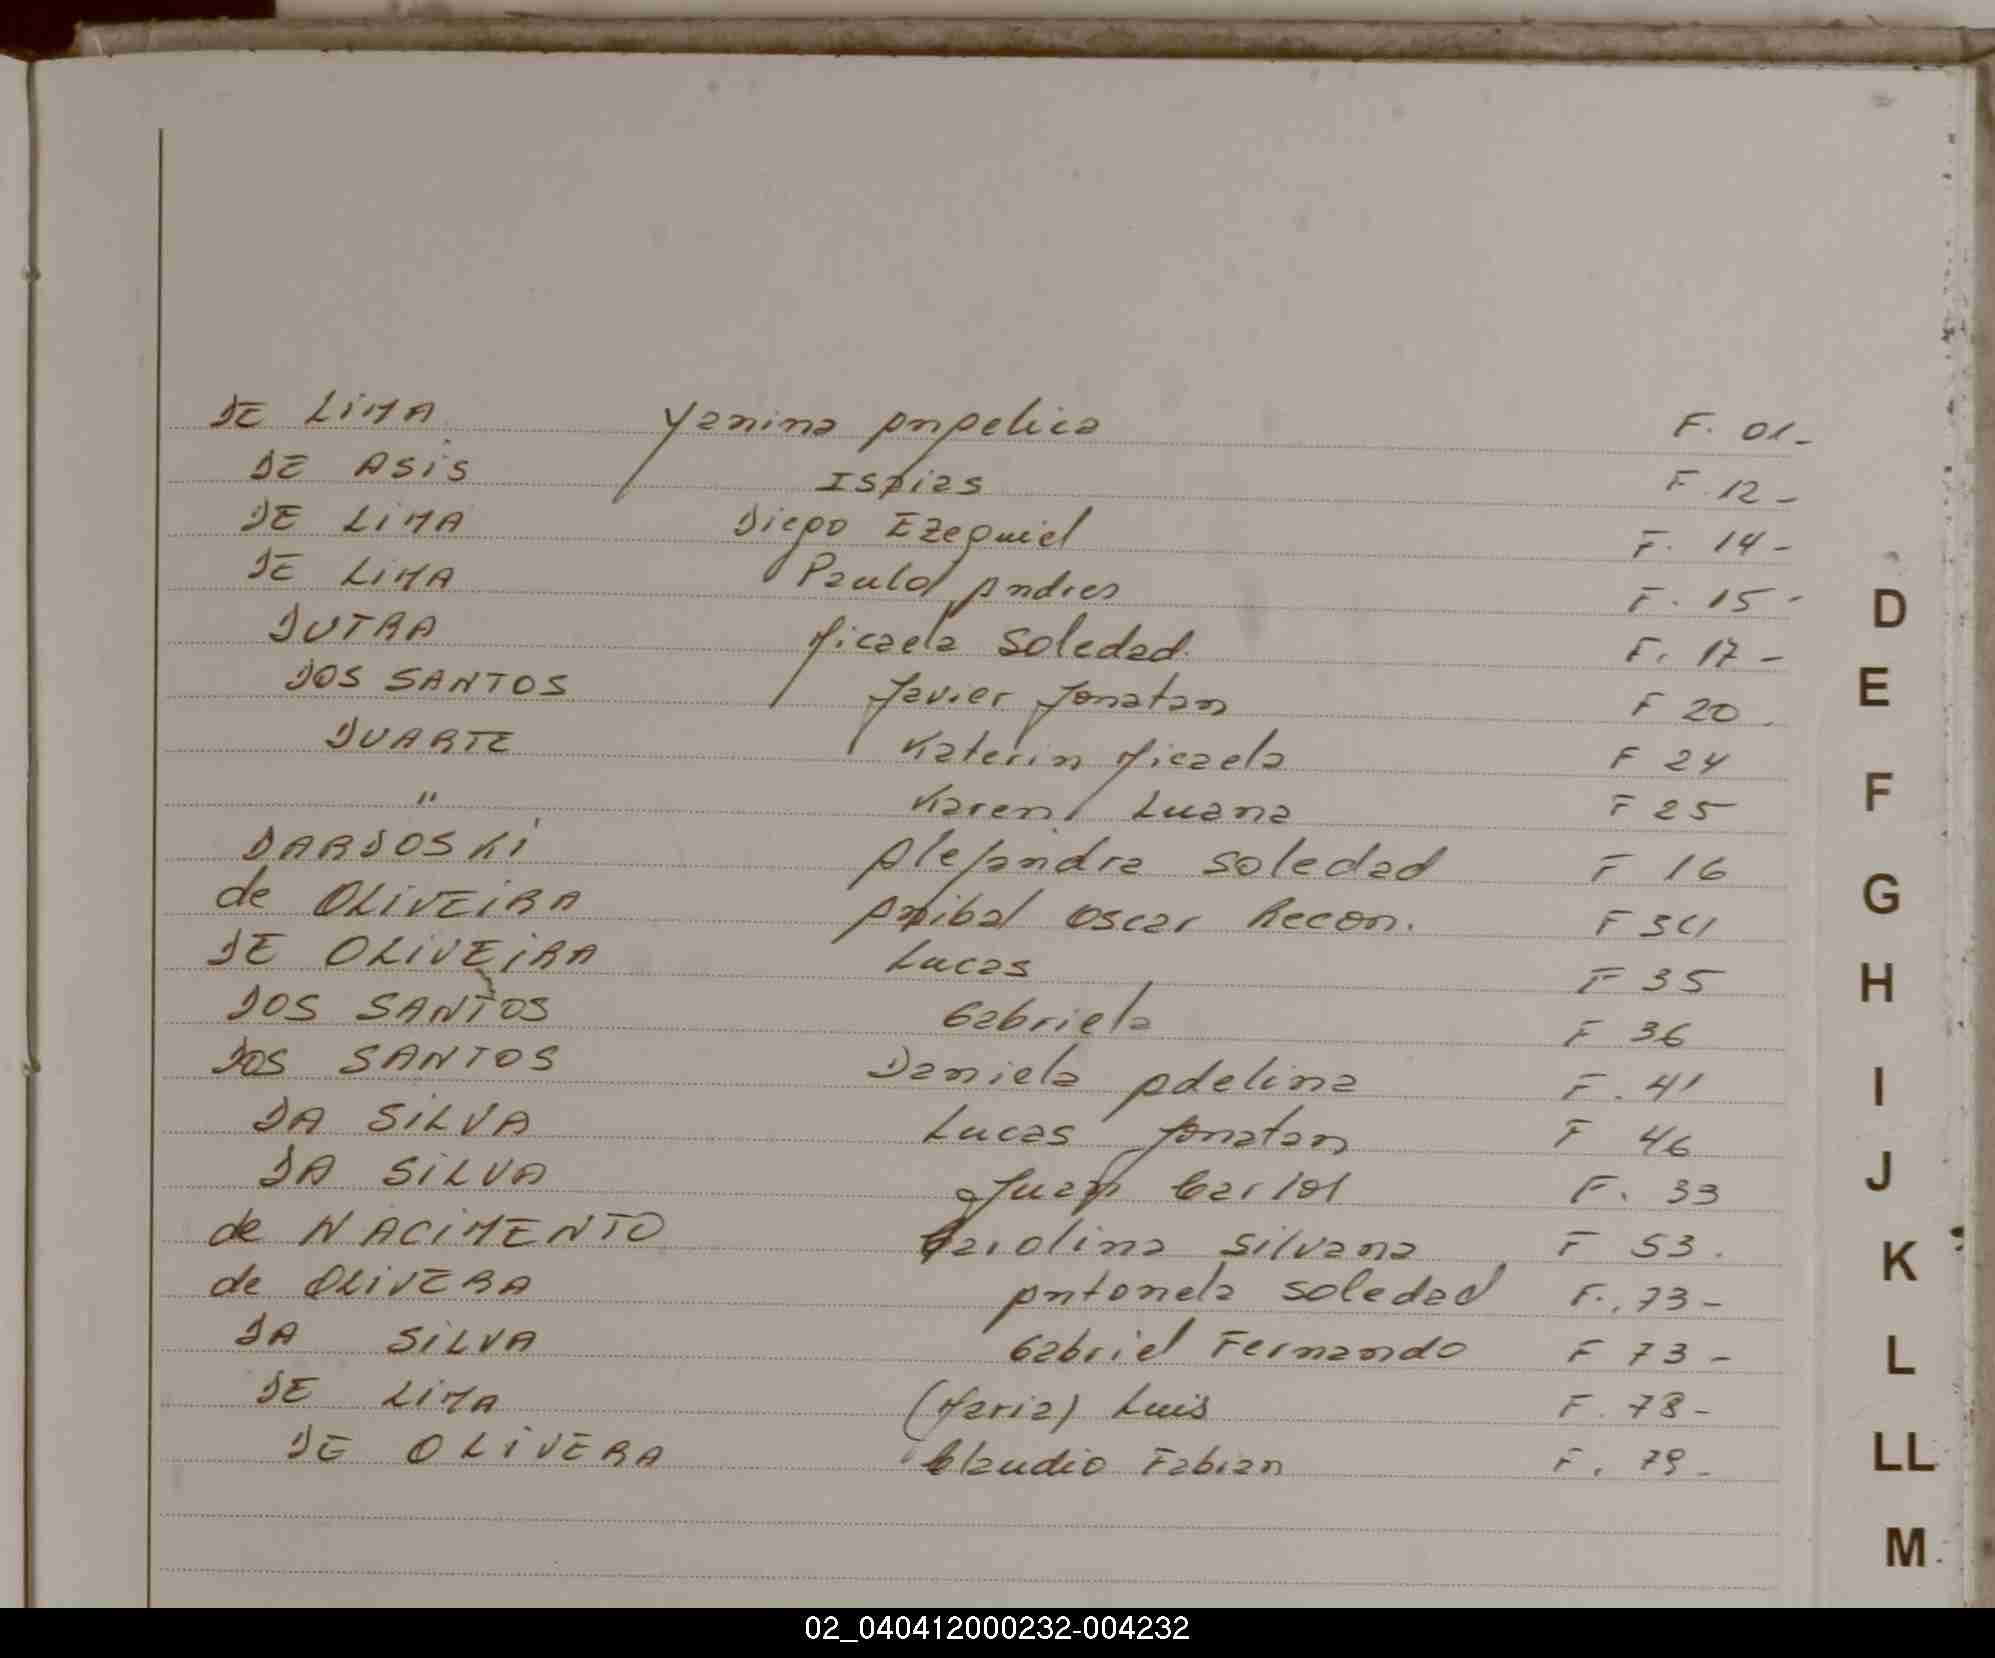 DE LIMA Yanina Angelica F. 01-
DE ASIS Isaias F. 12-
DE LIMA Diego Ezequiel F. 14-
DE LIMA Paulo Andres F. 15-
DUTRA Micaela Soledad. F. 17-
DOS SANTOS Javier Jonatan F 20.
DUARTE Katerin Micaela F 24
" Karen Luana F 25
DARDOSKI Alejandra Soledad F 16
de OLIVEIRA Anibal Oscar Recon. F 34
DE OLIVEIRA Lucas F 35
DOS SANTOS Gabriela F 36
DOS SANTOS Daniela Adelina F. 41
DA SILVA Lucas Jonatan F 46
DA SILVA Juan Carlos F. 33
de NACIMENTO Carolina Silvana F 53.
de OLIVERA Antonela Soledad F. 73-
DA SILVA Gabriel Fernando F 73-
DE LIMA (Maria) Luis F. 78-
DE OLIVERA Claudio Fabian F. 79-
D
E
F
G
H
I
J
K
L
LL
M
02_040412000232-004232